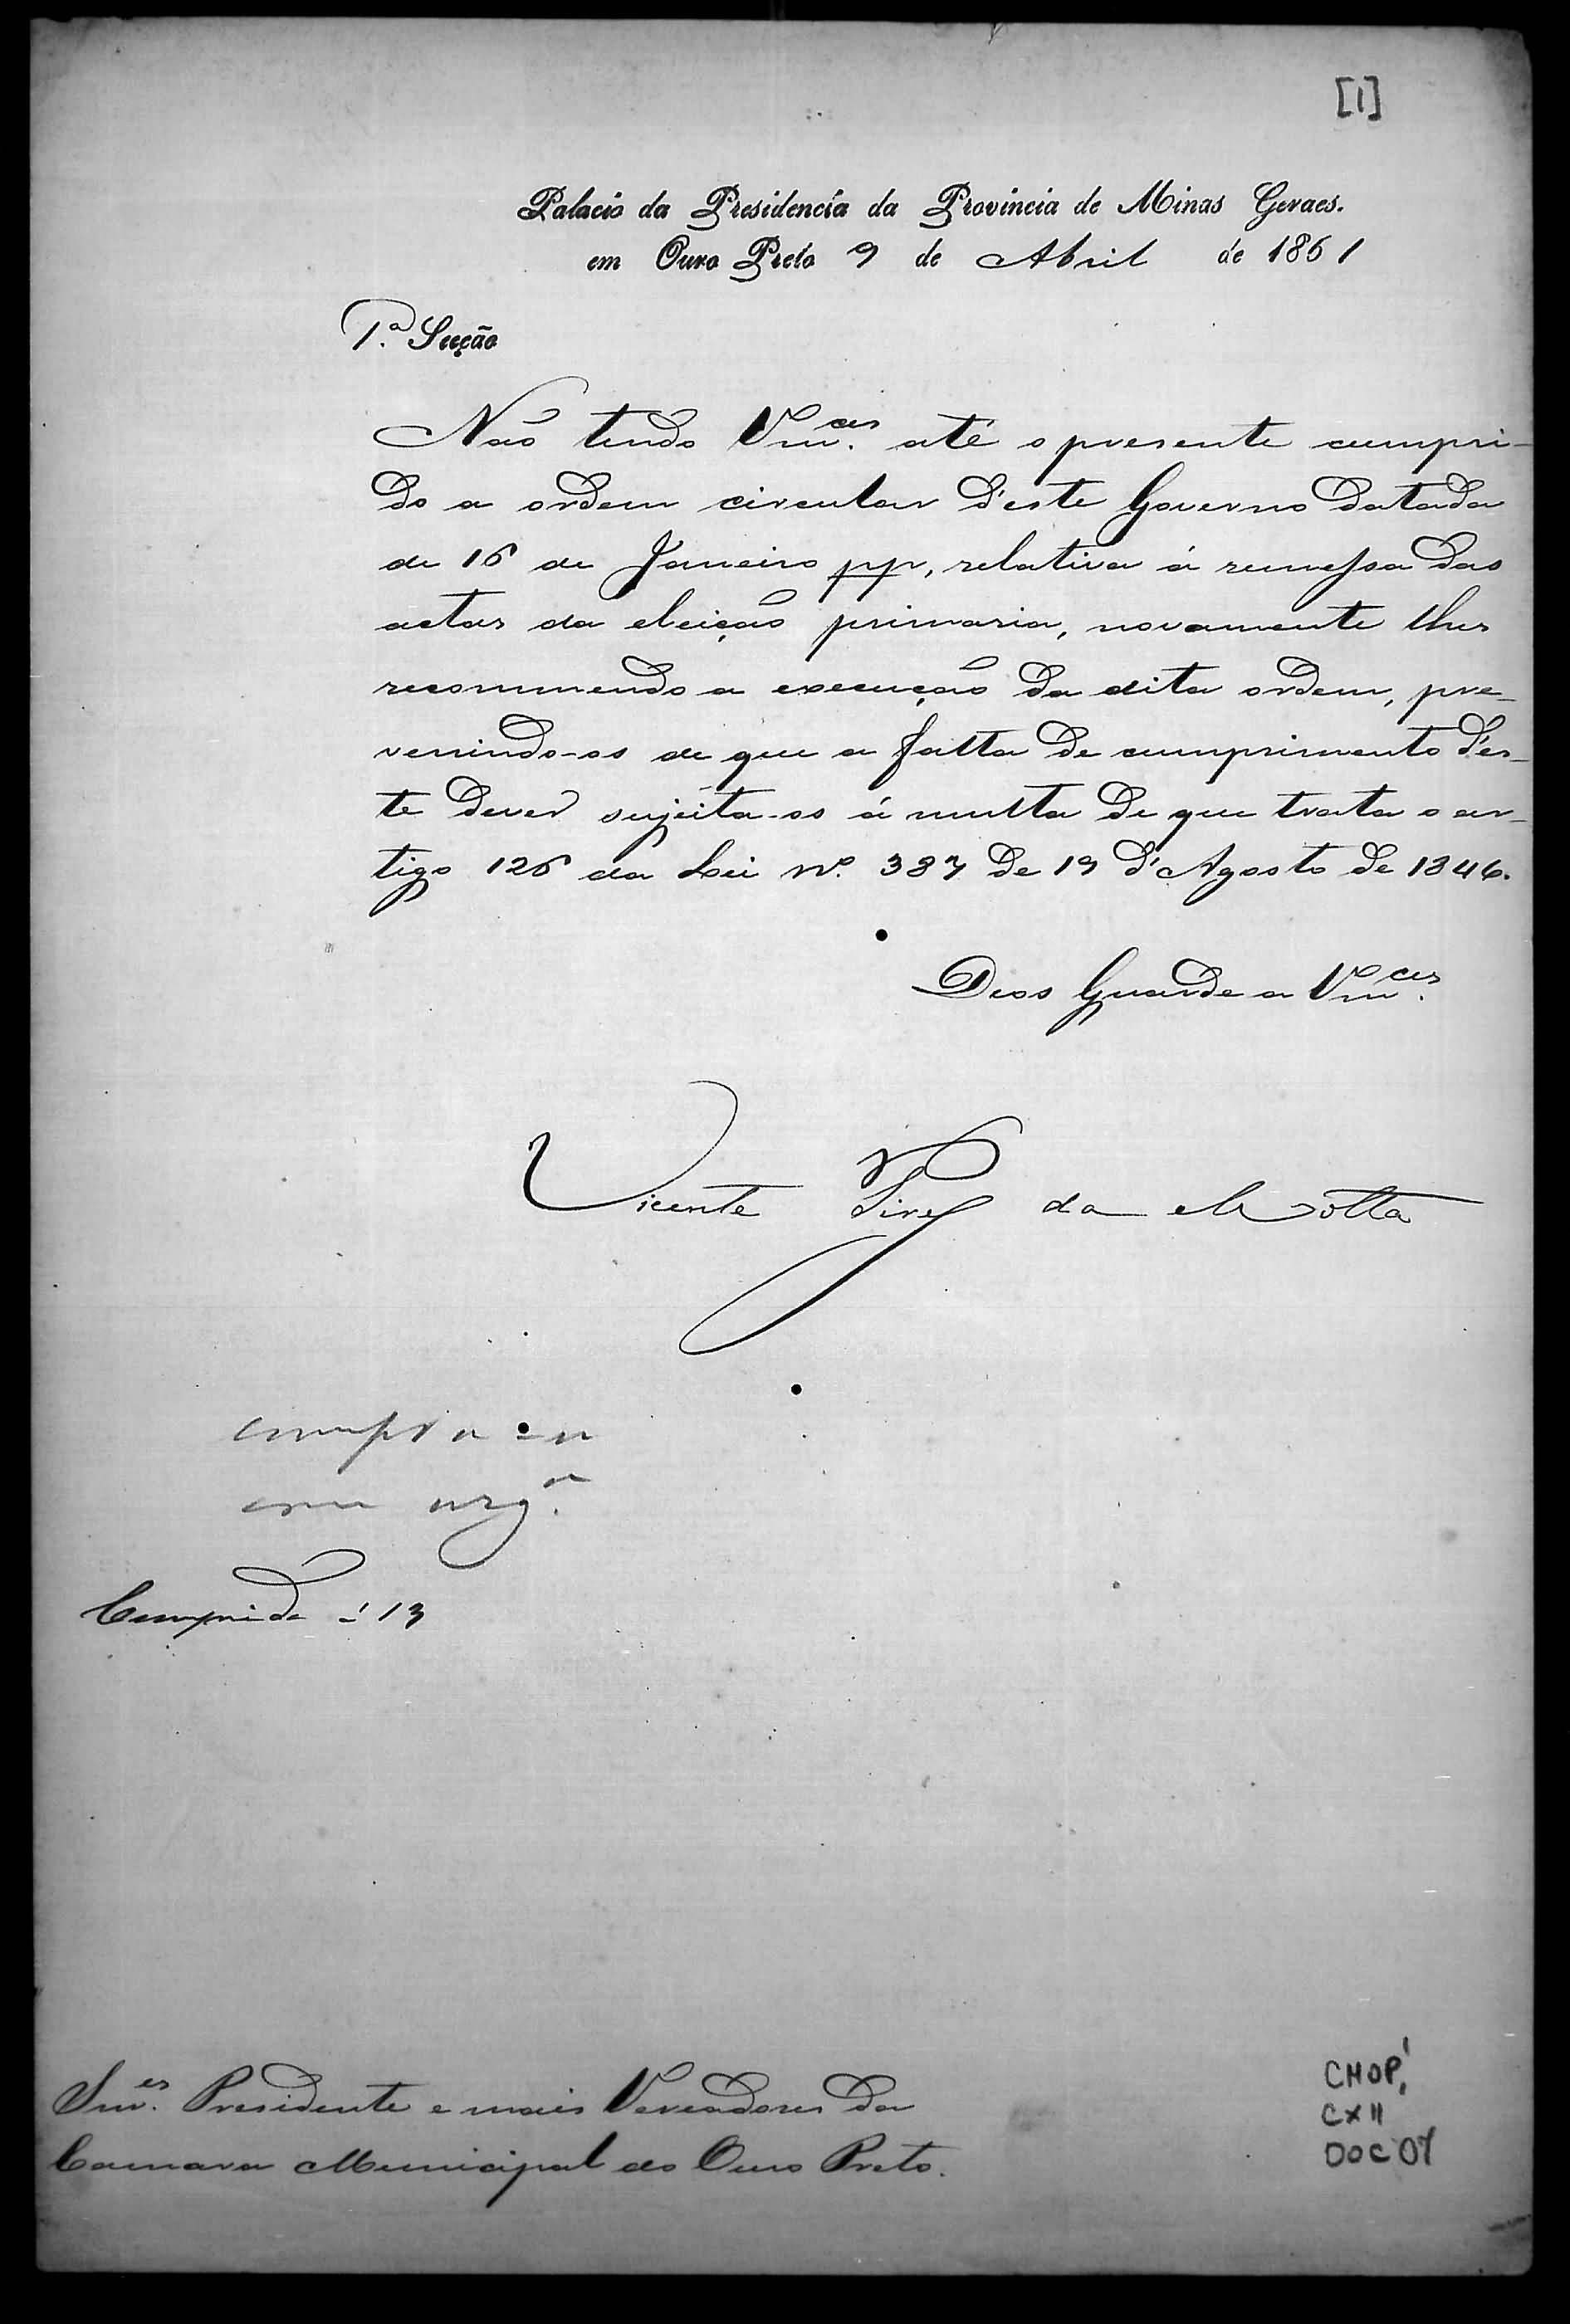 [1]
Palacio da Presidencia da Provincia de Minas Geraes.
em Ouro Preto 9 de Abril de 1861
1.ª Secção
Não tendo Vm.ces até o presente cumpri-
do a ordem circular d'este Governo datada
de 16 de Janeiro pp, relativa á remessa das
actas da eleição primaria, novamente lhes
recommendo a execução da dita ordem, pre-
venindo-os de que a falta de cumprimento d'es-
te dever sujeita-os á multa de que trata o ar-
tigo 126 da Lei nº. 387 de 19 d'Agosto de 1846.
Deos Guarde a Vm.ces
Vicente Pires da Motta
cumpra-se
com urg.ª
Cumprida á 13
Snr.es Presidente e mais Vereadores da
Camara Municipal do Ouro Preto.
CMOP,
CX 11
DOC 07